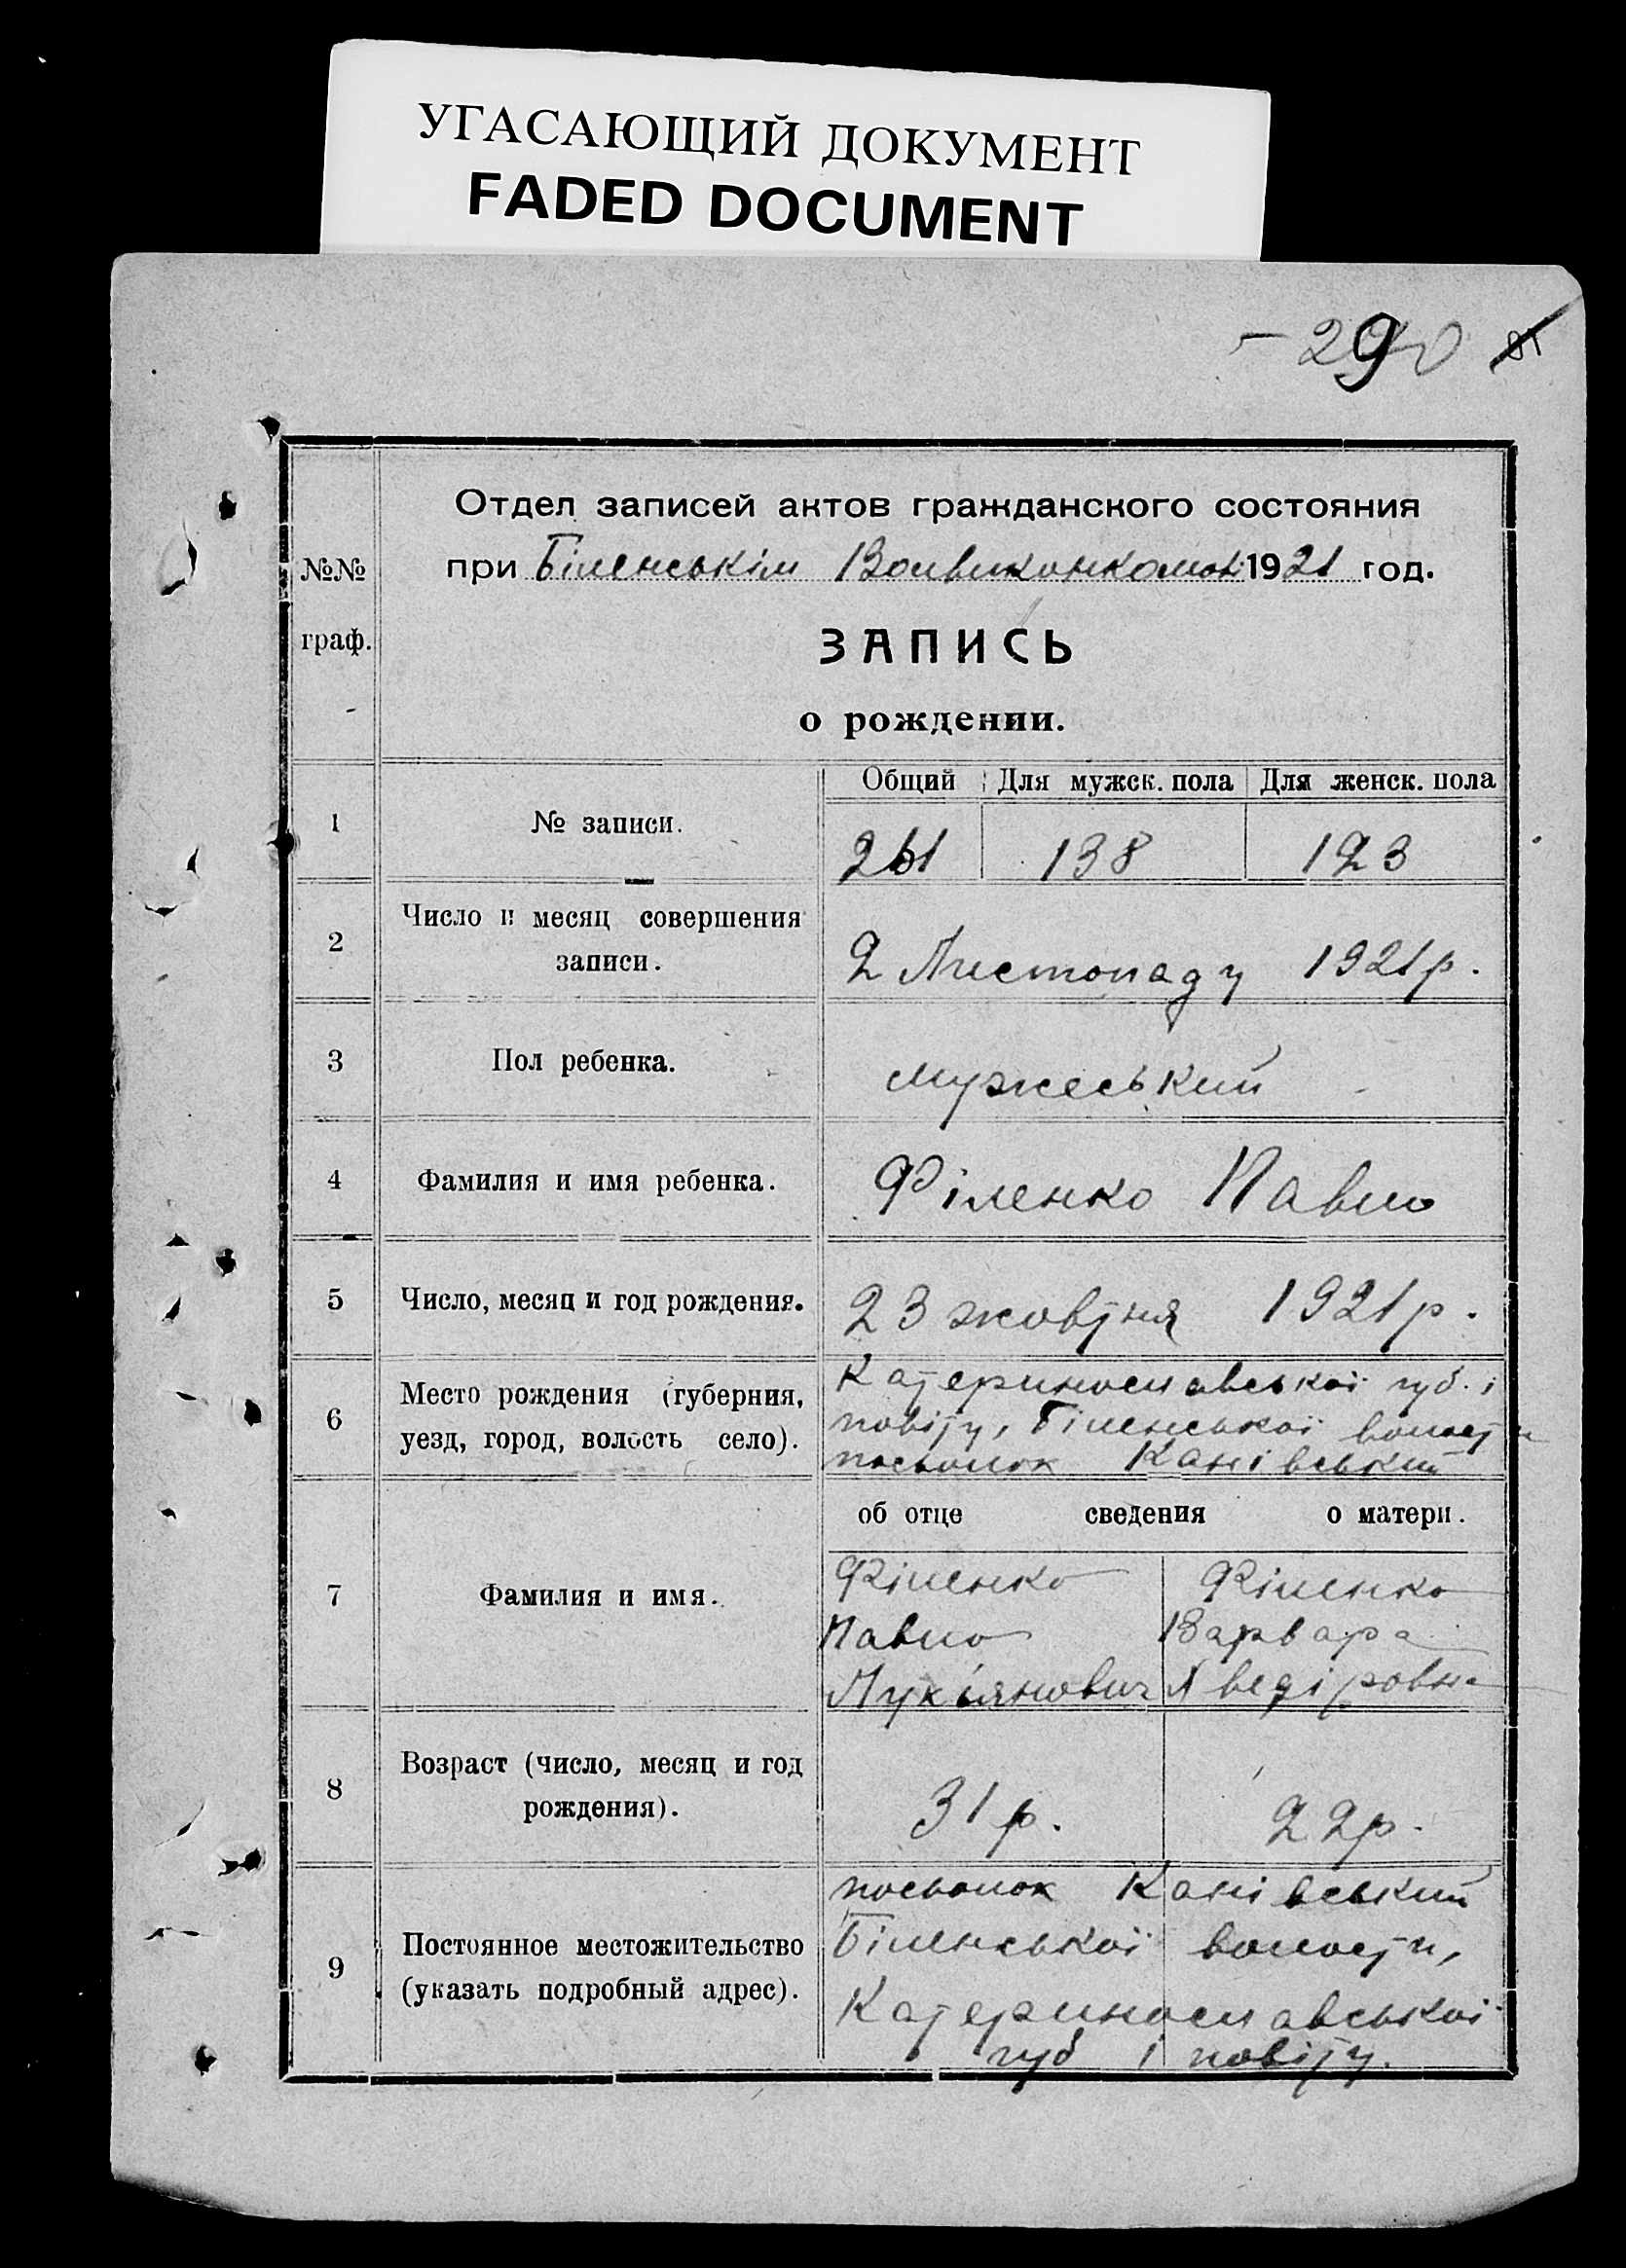 УГАСАЮЩИЙ ДОКУМЕНТ
FADED DOCUMENT
Отдел записей актов гражданского состояния
№№ при Біленськім Волвиконкомі 1921 год.
граф.
ЗАПИСЬ
о рождении.
Общий Для мужск. пола Для женск. пола
1 № записи. 261 138 123
2 Число и месяц совершения
записи. 2 Листопаду 1921 р.
3 Пол ребенка. мужеський
4 Фамилия и имя ребенка. Філенко Павло
5 Число, месяц и год рождения. 23 жовтня 1921 р.
6 Место рождения (губерния,
уезд, город, волость село).
Катеринославської губ. і
повіту, Біленської волости
посьолок Канівський
об отце сведения о матери.
7 Фамилия и имя.
Філенко Філенко
Павло Варвара
Лук'янович
8 Возраст (число, месяц и год
рождения). 31 р. 22 р.
9 Постоянное местожительство
(указать подробный адрес).
посьолок Канівський
Біленської волости,
Катеринославської
губ і повіту.